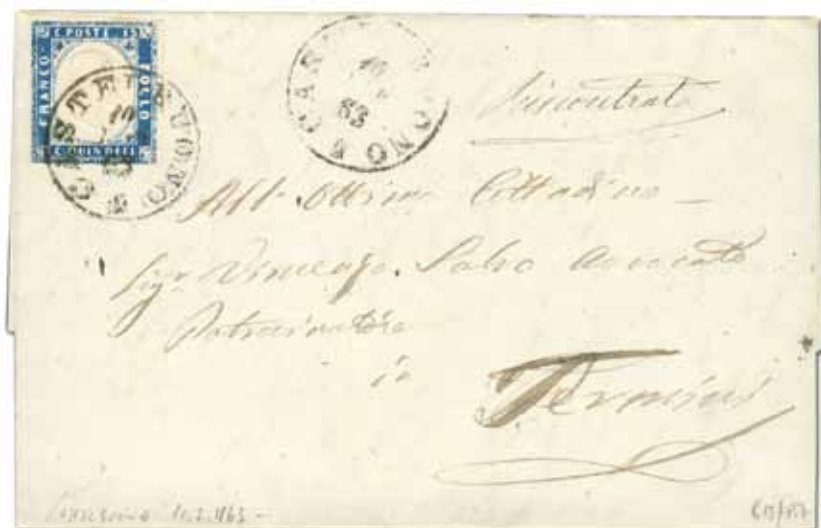 C. POSTE 15
FRANCO
BOLLO
C. QUINDICI
CASTELBUONO
10
63
Riscontrato
All' Ottimo Cittadino
Sigr. Vincenzo Salvo Avvocato
Patrocinatore
in
Termini